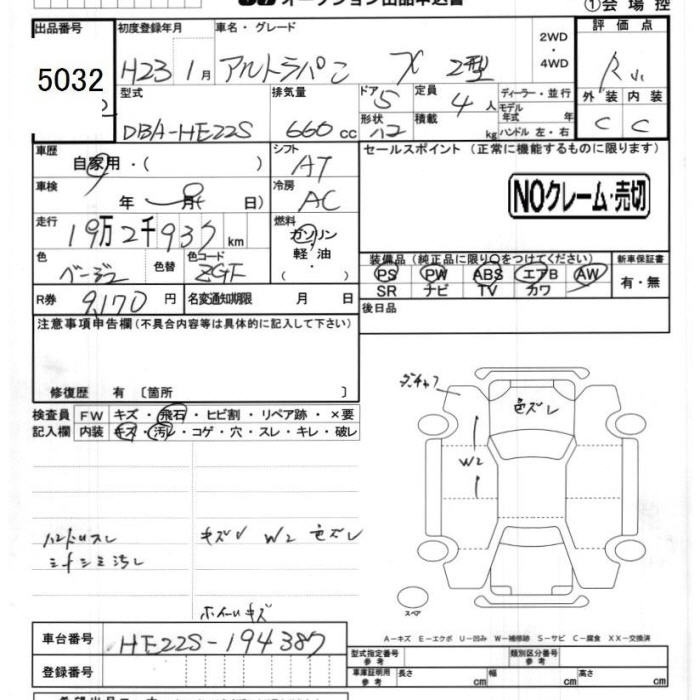 オークション出品申込書 ①会場控
出品番号 初度登録年月 車名・グレード 2WD・4WD 評価点
5032 H23 1月 アルトラパン X 2型
型式 排気量 ドア 5 定員 4人 ディーラー・並行 外装 内装
DBA-HE22S 660cc 形状 積載 kg モデル年式 年 C C
ハンドル 左・右
車歴 シフト セールスポイント (正常に機能するものに限ります)
自家用・( ) AT
車検 冷房 NOクレーム・売切
年 月( 日) AC
走行 燃料
19万2千937km ガソリン
軽・油
( ・ )
色 色替 色コード 装備品(純正品に限り○をつけてください) 新車保証書
ベージュ ZGF PS PW ABS エアB AW 有・無
R券 9,170円 名変通知期限 月 日 SR ナビ TV カワ
後日品
注意事項申告欄(不具合内容等は具体的に記入して下さい)
修復歴 有 〔箇所 〕
検査員 FW キズ・飛石・ヒビ割・リペア跡・×要
記入欄 内装 キズ・汚レ・コゲ・穴・スレ・キレ・破レ
色ズレ
W2
ハンドルスレ キズ W2 色ズレ
汚レ
ホイールキズ
スペア
A－キズ E－エクボ U－凹み W－補修跡 S－サビ C－腐食 XX－交換済
車台番号 HE22S-194387 型式指定番号 参考 類別区分番号 参考
登録番号 車庫証明用 参考 長さ cm 幅 cm 高さ cm